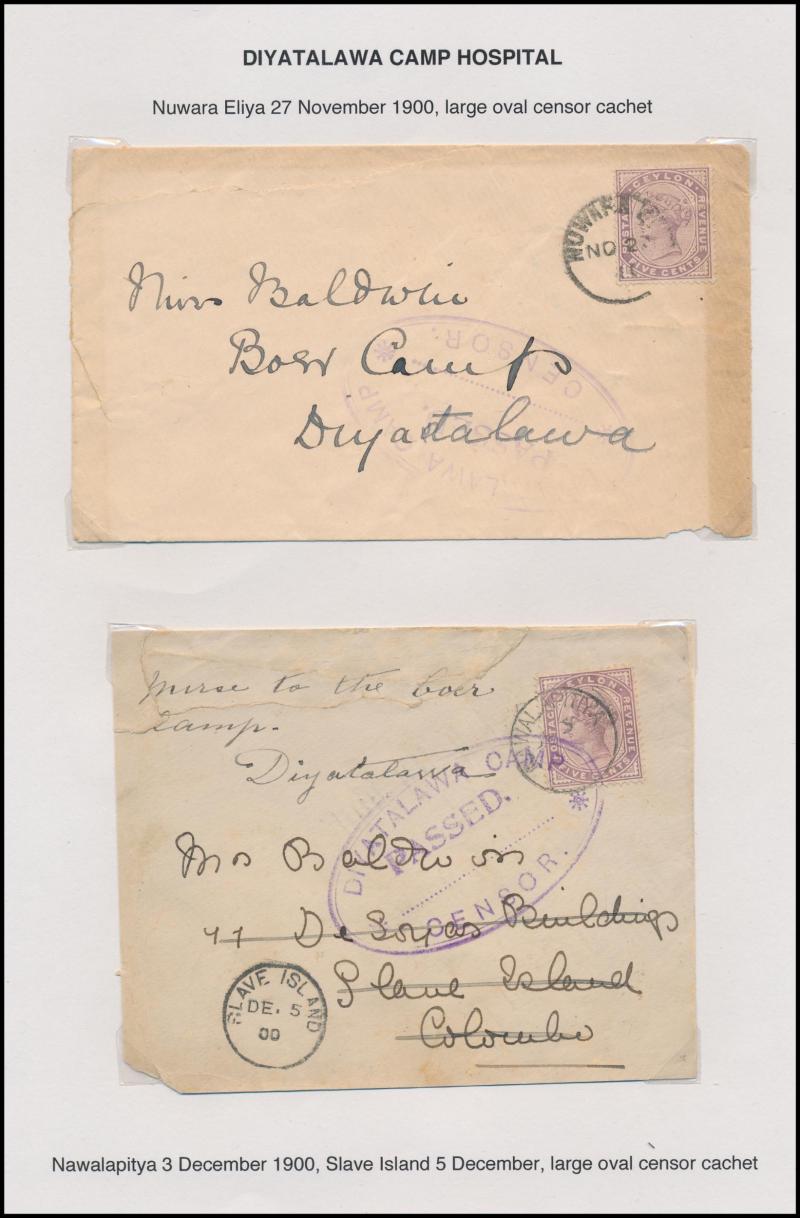 DIYATALAWA CAMP HOSPITAL
Nuwara Eliya 27 November 1900, large oval censor cachet
CEYLON
POSTAGE
REVENUE
FIVE CENTS
NUWARA
NO 2
Miss Baldwin
Boer Camp
Diyatalawa
LAWA CAMP
PASSED.
CENSOR.
Nurse to the boer
Camp.
Diyatalawa
CEYLON
POSTAGE
REVENUE
FIVE CENTS
WALAPITIYA
DIYATALAWA CAMP
PASSED.
CENSOR.
Mrs Baldwin
De Soyas Buildings
Slave Island
Colombo
SLAVE ISLAND
DE. 5
00
Nawalapitya 3 December 1900, Slave Island 5 December, large oval censor cachet